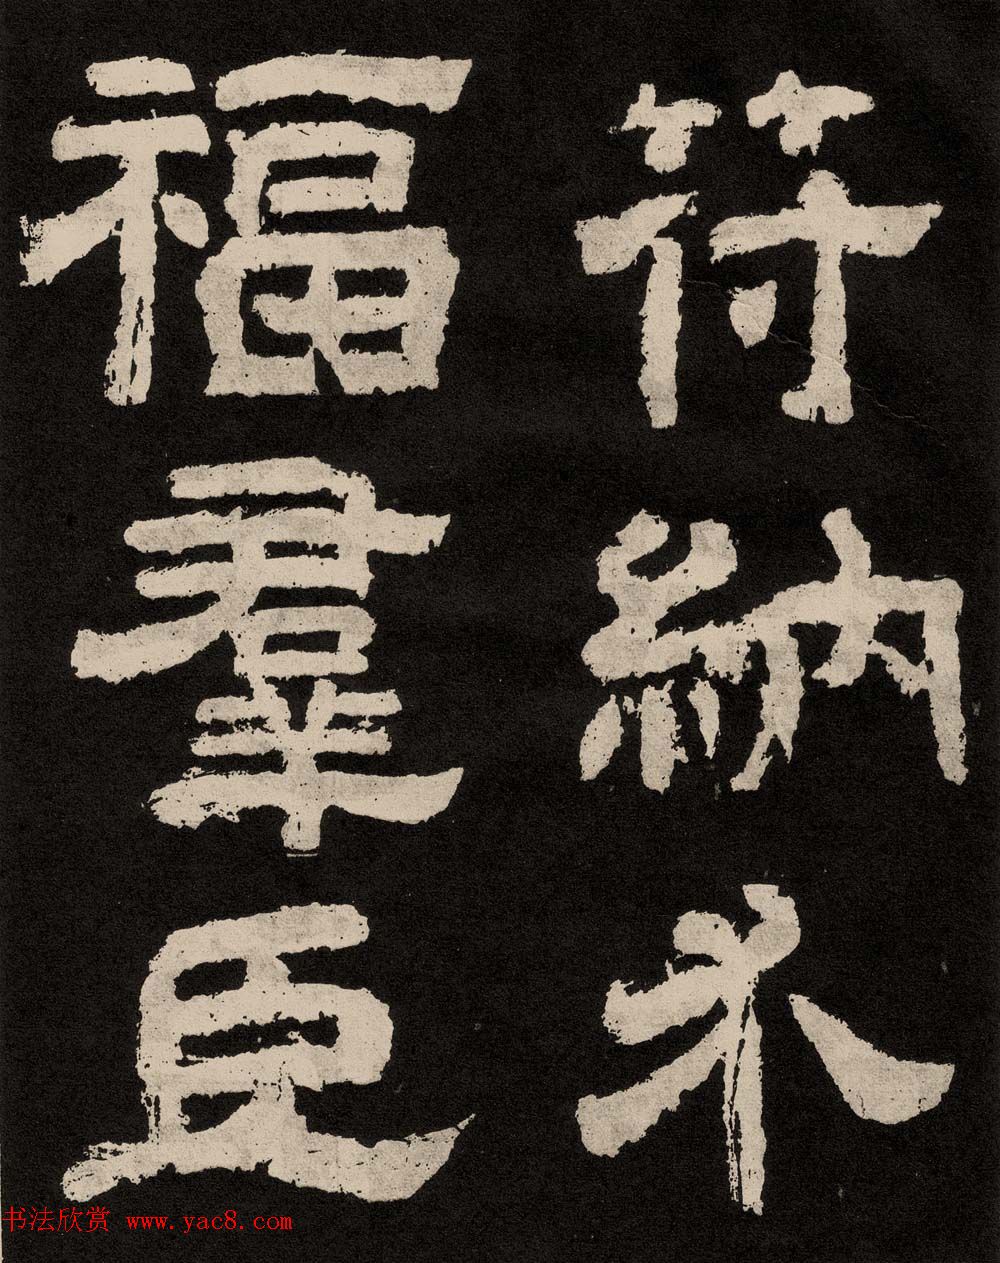 符納
福羣臣
书法欣赏 www.yac8.com